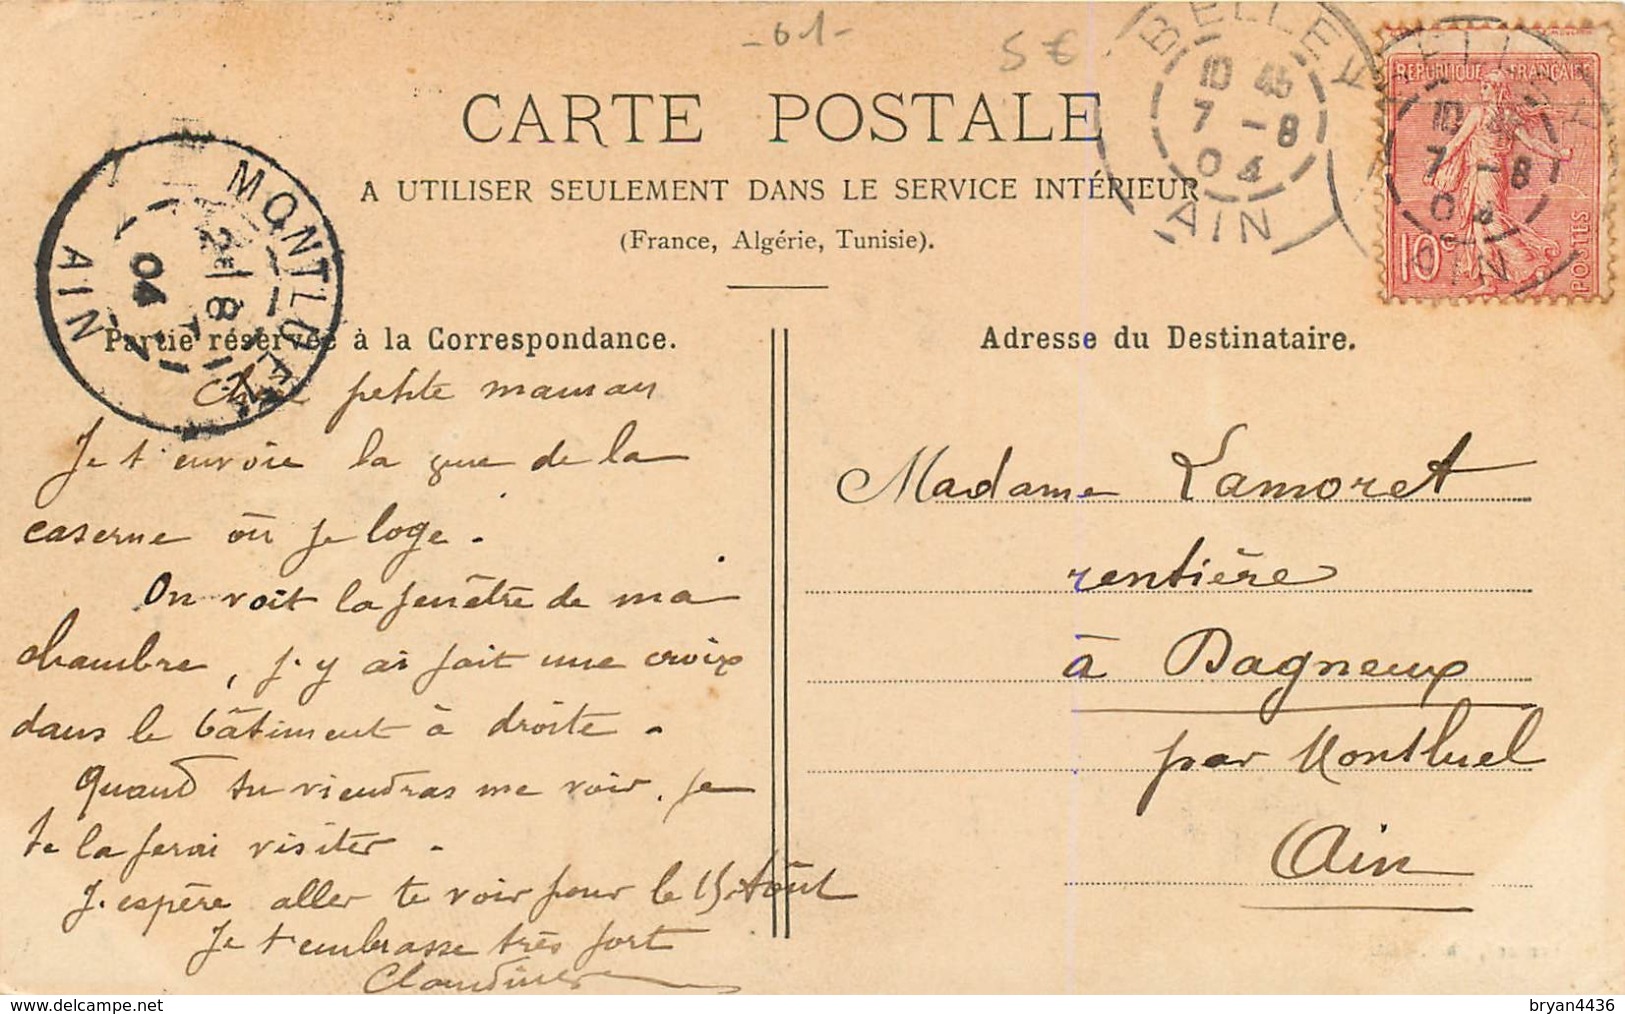 -61-
5€
CARTE POSTALE
A UTILISER SEULEMENT DANS LE SERVICE INTÉRIEUR
(France, Algérie, Tunisie).
BELLEY
10 45
7 -8
04
AIN
REPUBLIQUE FRANÇAISE
10c
POSTES
BELLEY
10 45
7 -8
04
AIN
MONTLUEL
8
04
AIN
Partie réservée à la Correspondance.
Chère petite maman
Je t'envoie la vue de la
caserne où je loge.
On voit la fenêtre de ma
chambre, j'y ai fait une croix
dans le bâtiment à droite.
Quand tu viendras me voir, je
te la ferai visiter.
J'espère aller te voir pour le 15 Août
Je t'embrasse très fort
Adresse du Destinataire.
Madame Lamoret
rentière
à Dagneux
par Montluel
Ain
bryan4436